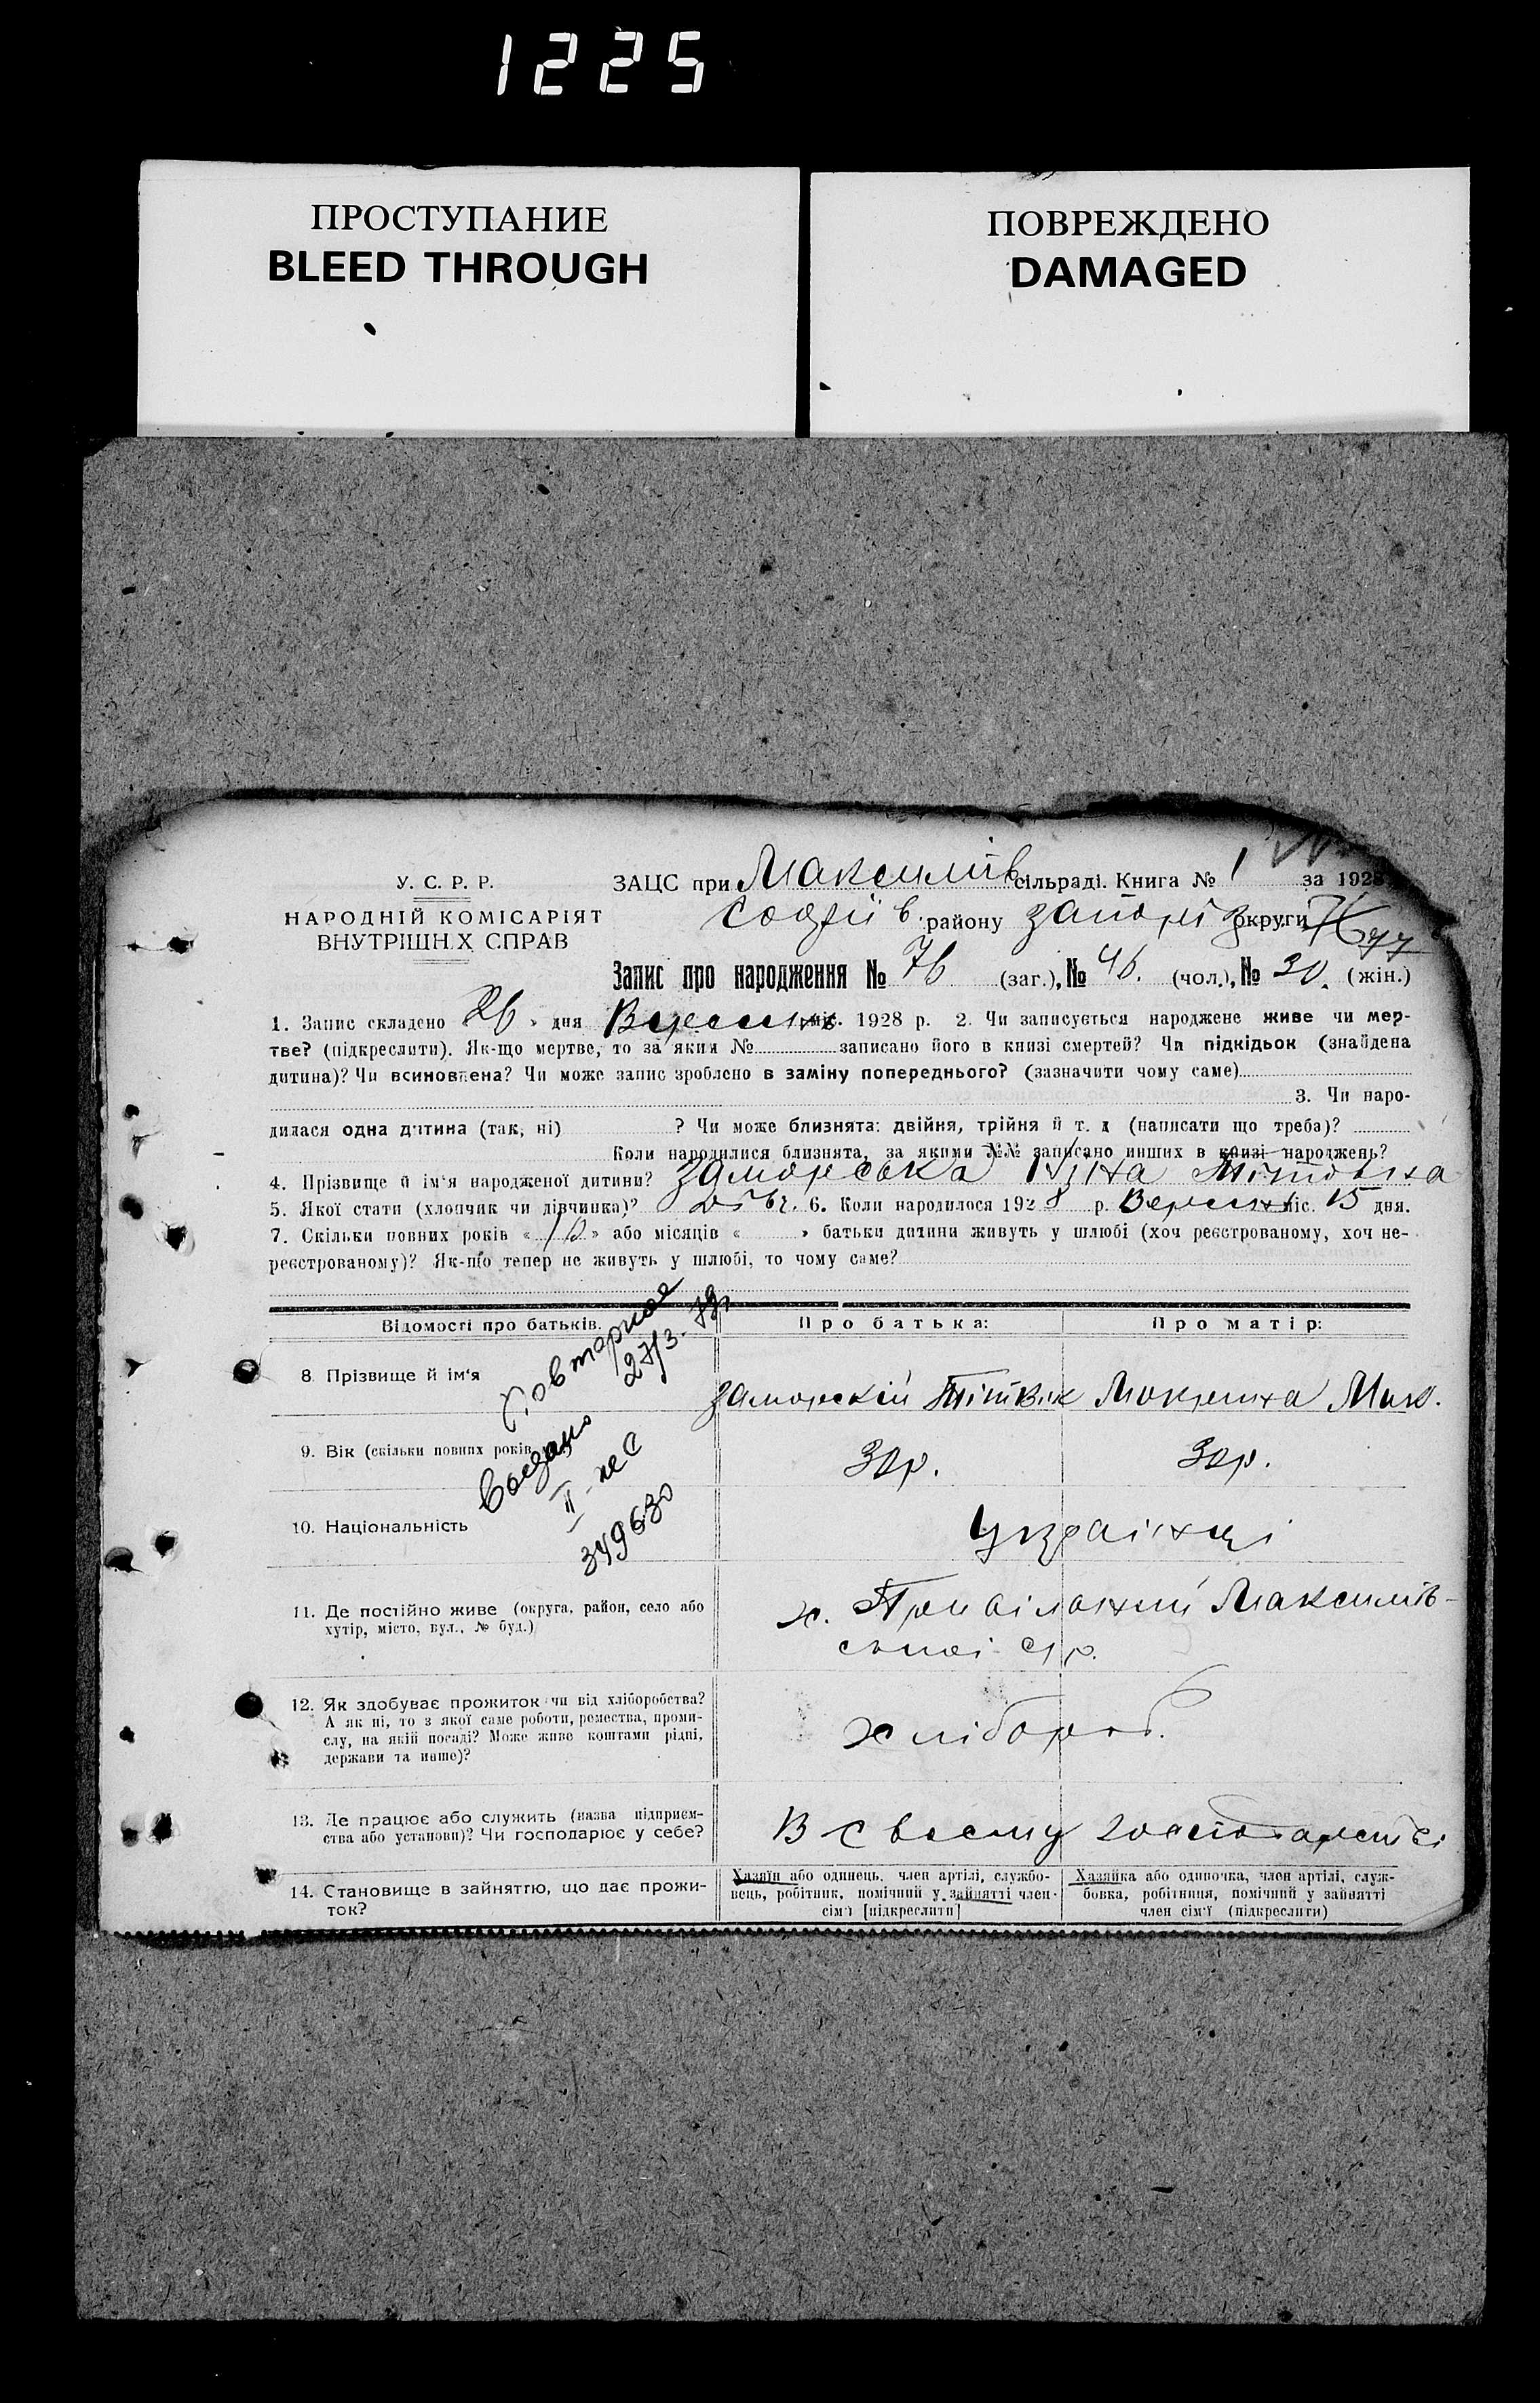 1225
ПРОСТУПАНИЕ
BLEED THROUGH
ПОВРЕЖДЕНО
DAMAGED
У. С. Р. Р.
НАРОДНІЙ КОМІСАРІЯТ
ВНУТРІШНІХ СПРАВ
ЗАЦС при Максимів сільраді. Книга № 1 за 1928
Софіїв району Запоріз округи
Запис про народження № 76 (заг.), № 46. (чол.), № 30. (жін.)
1. Запис складено « 26 » дня Вересня міс. 1928 р. 2. Чи записується народжене живе чи мер-
тве? (підкреслити). Як-що мертве, то за яким № записано його в книзі смертей? Чи підкідьок (знайдена
дитина)? Чи всиновлена? Чи може запис зроблено в заміну попереднього? (зазначити чому саме)
3. Чи наро-
дилася одна дитина (так, ні) ? Чи може близнята: двійня, трійня й т. д (написати що треба)?
Коли народилися близнята, за якими №№ записано инших в книзі народжень?
4. Прізвище й ім'я народженої дитини? Заморська Ніна Тітовна
5. Якої стати (хлопчик чи дівчинка)? Дівч. 6. Коли народилося 1928 р. Вересня міс. 15 дня.
7. Скільки повних років « 10 » або місяців « » батьки дитини живуть у шлюбі (хоч реєстрованому, хоч не-
реєстрованому)? Як-що тепер не живуть у шлюбі, то чому саме?
Відомості про батьків. Про батька: Про матір:
8. Прізвище й ім'я Заморскій Тіт Мокрина Мик.
Повторное
27/3-79г
9. Вік (скільки повних років 30р. 30р.
II-
349630
10. Національність Українці
11. Де постійно живе (округа, район, село або
хутір, місто, вул., № буд.)
х. Привільний Максимів-
ської с/р.
12. Як здобуває прожиток чи від хліборобства?
А як ні, то з якої саме роботи, ремества, проми-
слу, на якій посаді? Може живе коштами рідні,
держави та инше)?
хлібороб.
13. Де працює або служить (назва підприєм-
ства або установи)? Чи господарює у себе?
В своєму господарстві
14. Становище в зайняттю, що дає прожи-
ток?
Хазяїн або одинець, член артілі, службо-
вець, робітник, помічний у зайнятті член
сім'ї [підкреслити]
Хазяйка або одиночка, член артілі, служ-
бовка, робітниця, помічний у зайнятті
член сім'ї (підкреслити)